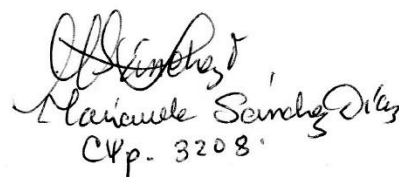 MSánchezD
Marianela Sánchez Díaz
CΨp. 3208.